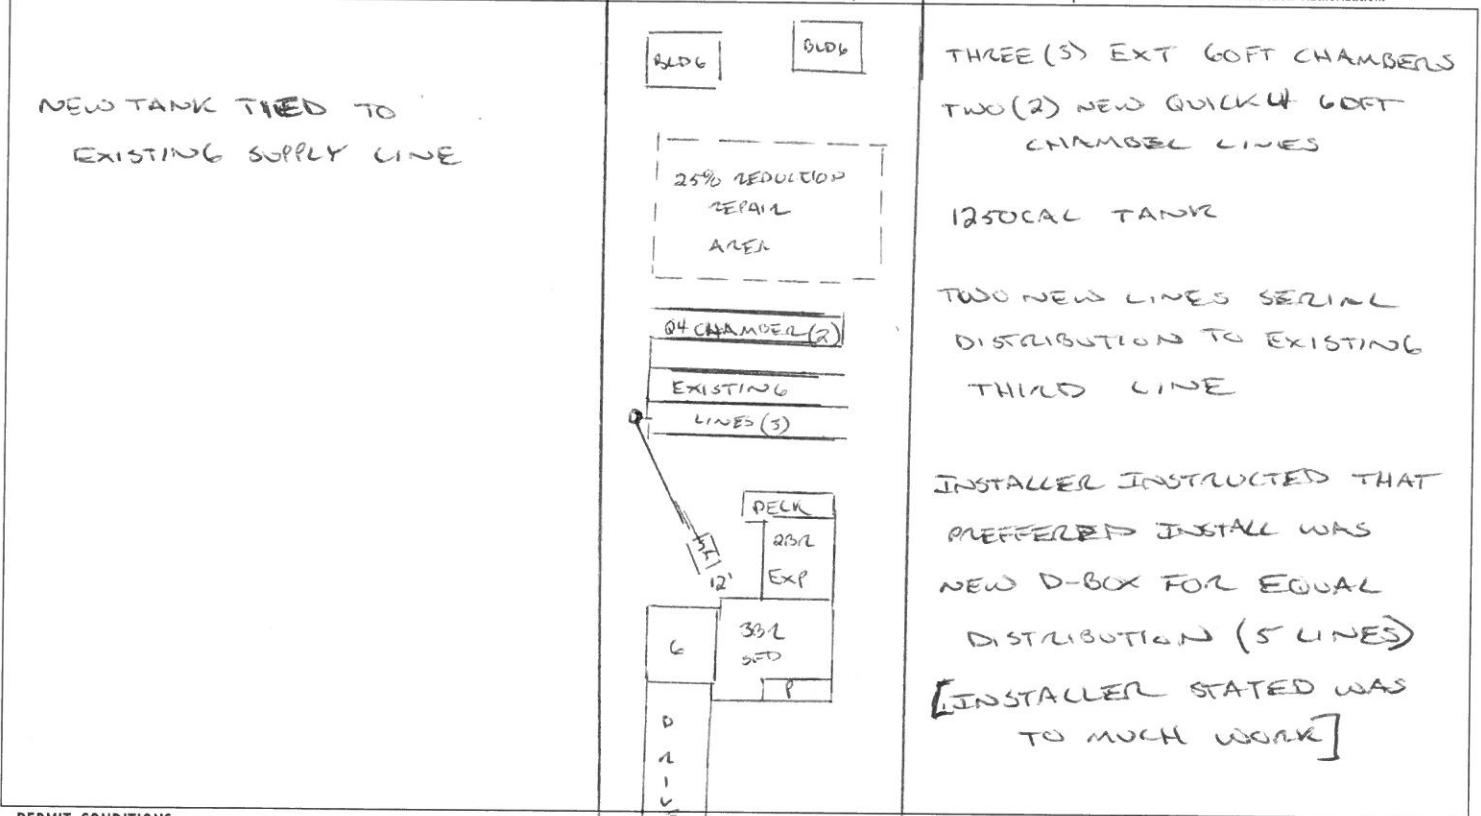 NEW TANK TIED TO
EXISTING SUPPLY LINE
BLDG
BLDG
25% REDUCTION
REPAIR
AREA
Q4 CHAMBER (2)
EXISTING
LINES (3)
DECK
2BR
EXP
12'
3BR
SFD
G
P
D
R
I
V
THREE (3) EXT 60FT CHAMBERS
TWO (2) NEW QUICK 4 60FT
CHAMBER LINES
1250GAL TANK
TWO NEW LINES SERIAL
DISTRIBUTION TO EXISTING
THIRD LINE
INSTALLER INSTRUCTED THAT
PREFFERED INSTALL WAS
NEW D-BOX FOR EQUAL
DISTRIBUTION (5 LINES)
[INSTALLER STATED WAS
TO MUCH WORK]
PERMIT CONDITIONS